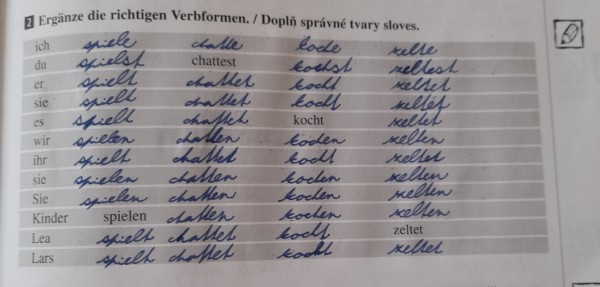 2 Ergänze die richtigen Verbformen. / Doplň správné tvary sloves.
ich spiele chatte koche zelte
du spielst chattest kochst zeltest
er spielt chattet kocht zeltet
sie spielt chattet kocht zeltet
es spielt chattet kocht zeltet
wir spielen chatten kochen zelten
ihr spielt chattet kocht zeltet
sie spielen chatten kochen zelten
Sie spielen chatten kochen zelten
Kinder spielen chatten kochen zelten
Lea spielt chattet kocht zeltet
Lars spielt chattet kocht zeltet